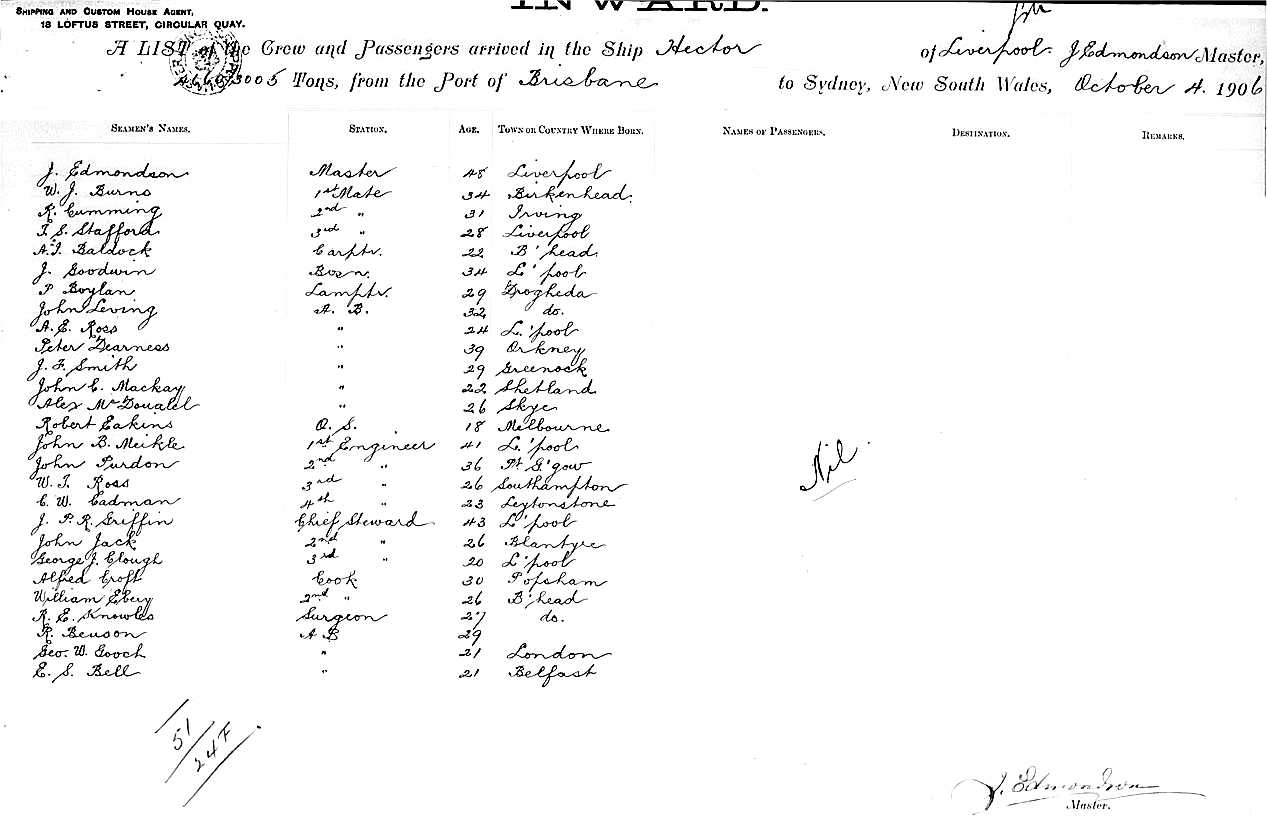 INWARD.
SHIPPING AND CUSTOM HOUSE AGENT,
18 LOFTUS STREET, CIRCULAR QUAY.
A LIST of the Crew and Passengers arrived in the Ship Hector of Liverpool J Edmondson Master,
Tons, from the Port of Brisbane to Sydney, New South Wales, October 4. 1906
SEAMEN'S NAMES. STATION. AGE. TOWN OR COUNTRY WHERE BORN. NAMES OF PASSENGERS. DESTINATION. REMARKS.
J. Edmondson Master 48 Liverpool
W. J. Burns 1st Mate 34 Birkenhead.
R. Cumming 2nd " 31 Irving
T. S. Stafford 3rd " 28 Liverpool
A. J. Baldock Carptr. 22 B'head
J. Goodwin Bosn. 34 L'pool
P Boylan Lamptr. 29 Drogheda
John Leving A. B. 32 do.
A. E. Ross " 24 L.'pool
Peter Dearness " 39 Orkney
J. F. Smith " 29 Greenock
John C. Mackay " 22 Shetland
Alex McDougalel " 26 Skye
Robert Eakins O. S. 18 Melbourne
John B. Meikle 1st Engineer 41 L.'pool
John Purdon 2nd " 36 Pt. G'gow
W. J. Ross 3rd " 26 Southampton
C. W. Cadman 4th " 23 Leytonstone
J. P. R. Griffin Chief Steward 43 L'pool
John Jack 2nd " 26 Blantyre
George J. Clough 3rd " 20 L'pool
Alfred Croft Cook 30 Topsham
William Ebery 2nd " 26 B'head
R. E. Knowles Surgeon 27 do.
R. Benson A B 29
Geo. W. Gooch " 21 London
E. S. Bell " 21 Belfast
Nil
51
24 F
J. Edmondson
Master.